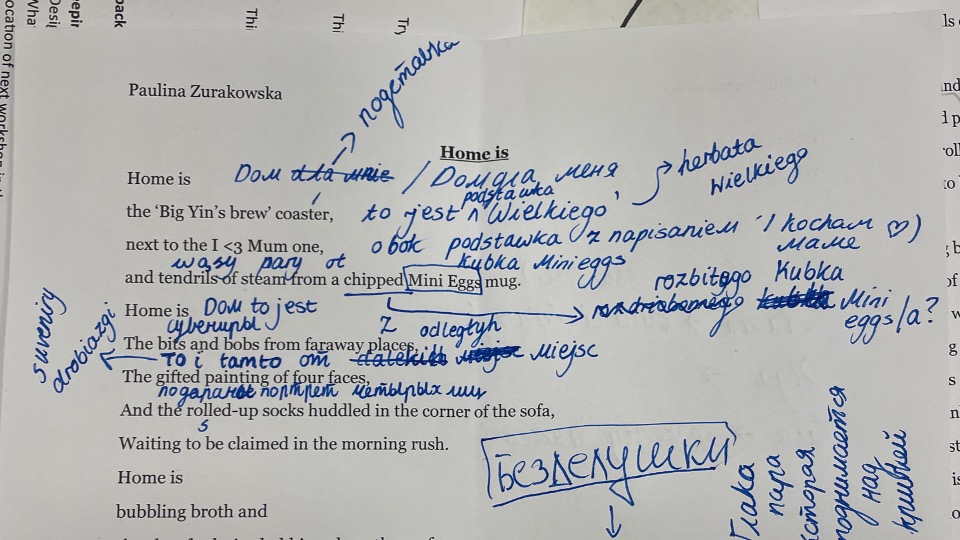 Paulina Zurakowska
подставка
Home is
Home is Dом dла mnie / Dом для меня
herbata Wielkiego
podstawka
the ‘Big Yin’s brew’ coaster, to jest ^ Wielkiego'
next to the I <3 Mum one, obok podstawka (z napisaniem 'I kocham маме ♡)
wąsy pary ot kubka Mini eggs
and tendrils of steam from a chipped Mini Eggs mug.
rozbitego Kubka
Mini eggs/a?
Home is Dом to jest
сувениры z odległyh
The bits and bobs from faraway places,
suveniry
drobiazgi
To i tamto om dalekih miejsc miejsc
The gifted painting of four faces,
портрет четырых лиц
And the rolled-up socks huddled in the corner of the sofa,
s
Waiting to be claimed in the morning rush.
Безделушки
Home is
bubbling broth and
пара
которая
поднимается
над